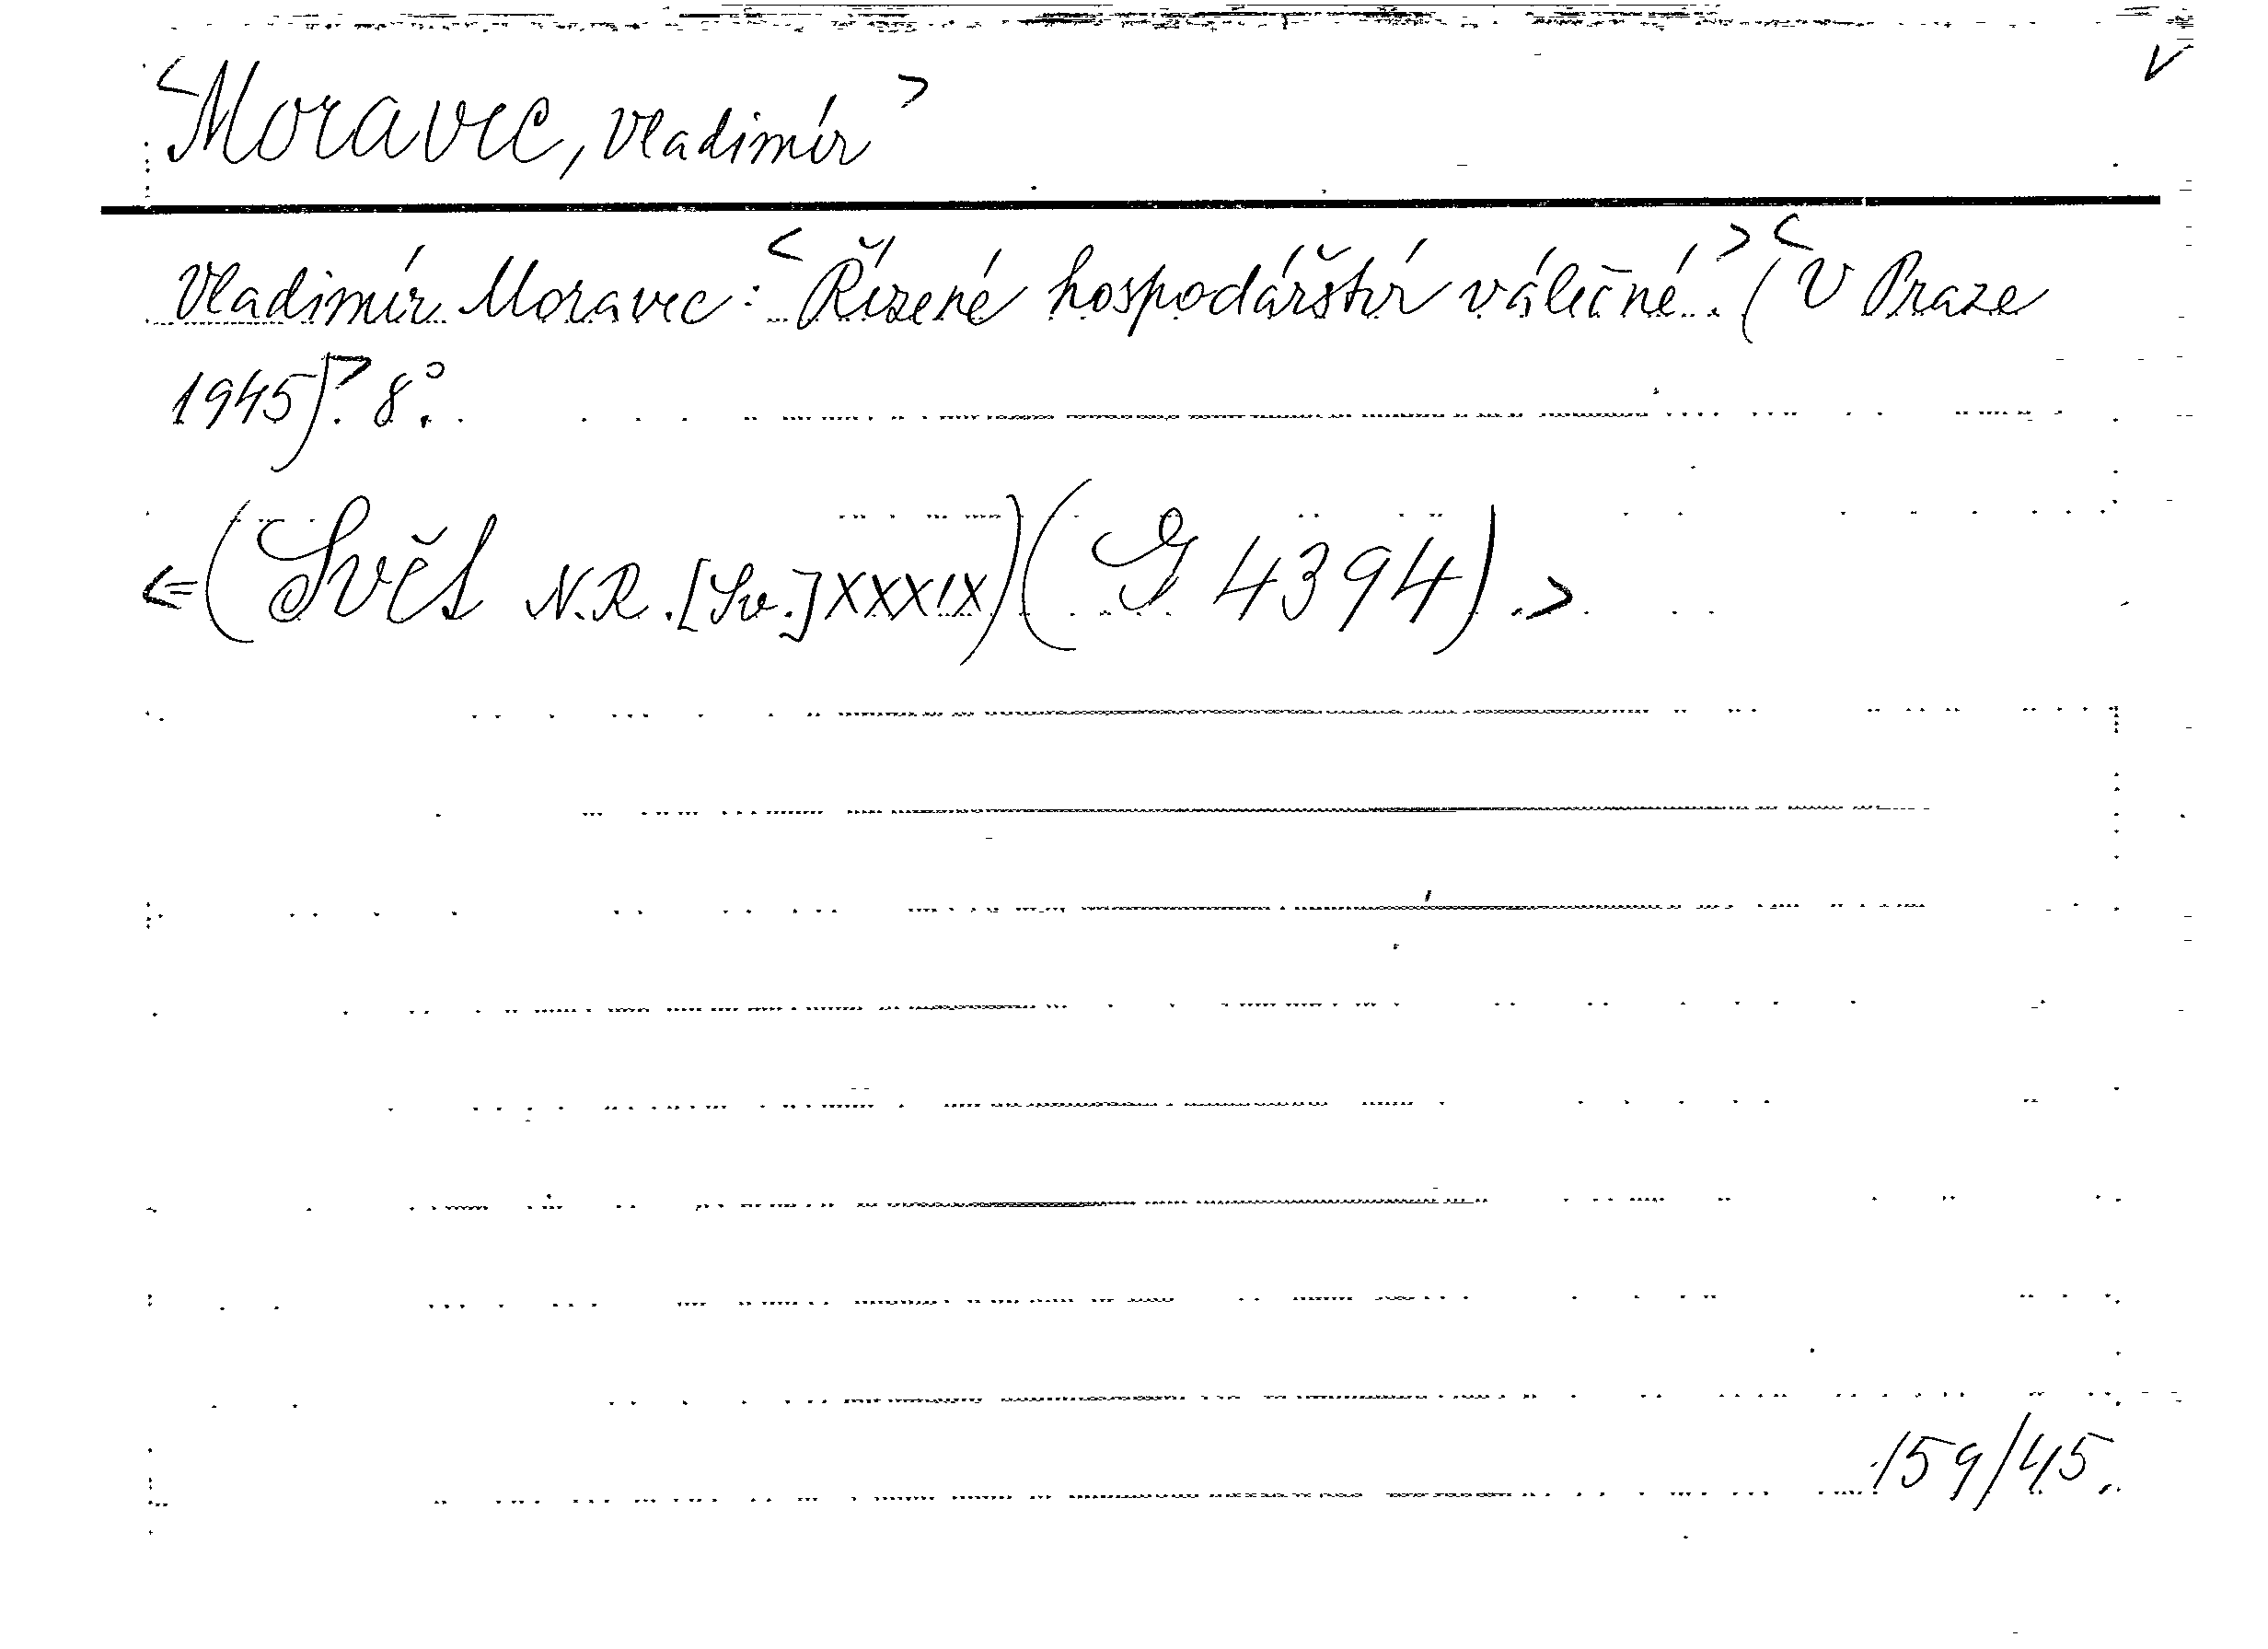 <Moravec, Vladimír> V
Vladimír Moravec: <Řízené hospodářství válečné.> <(V Praze
1945)>. 8°.
<=(Svět N.R. [Sv.] XXXIX) (G 4394).>
159/45.